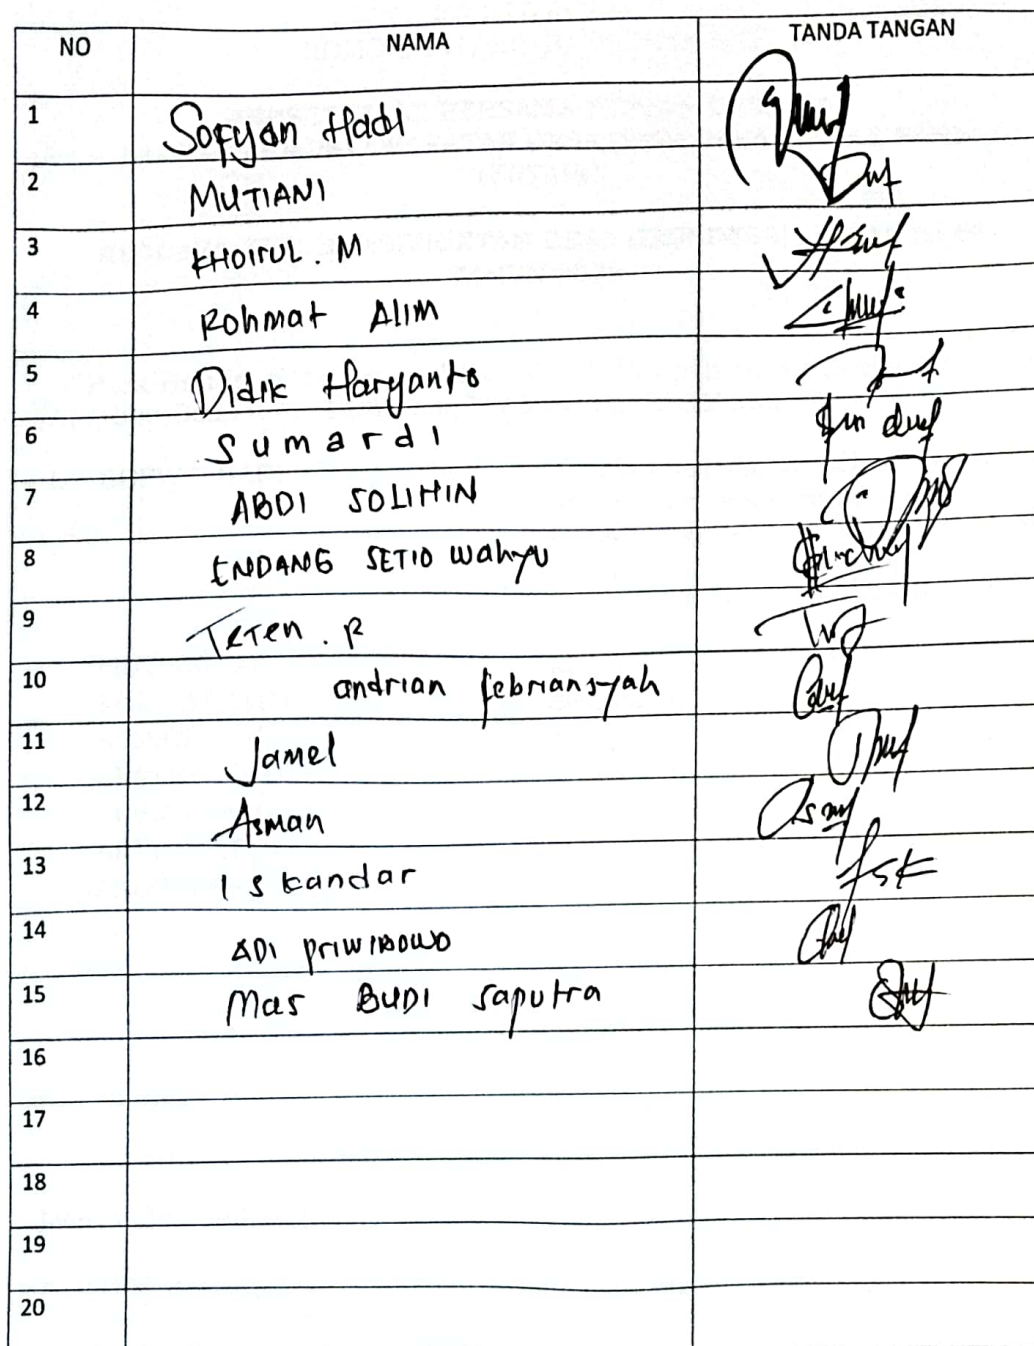 NO NAMA TANDA TANGAN
1 Sofyan Hadi
2 MUTIANI
3 KHOIRUL. M
4 Rohmat ALIM
5 Didik Haryanto
6 Sumardi
7 ABDI SOLIHIN
8 ENDANG SETIO wahyu
9 Teten. R
10 andrian febriansyah
11 Jamel
12 Asman
13 Iskandar
14 ADI priwibowo
15 Mas BUDI saputra
16
17
18
19
20